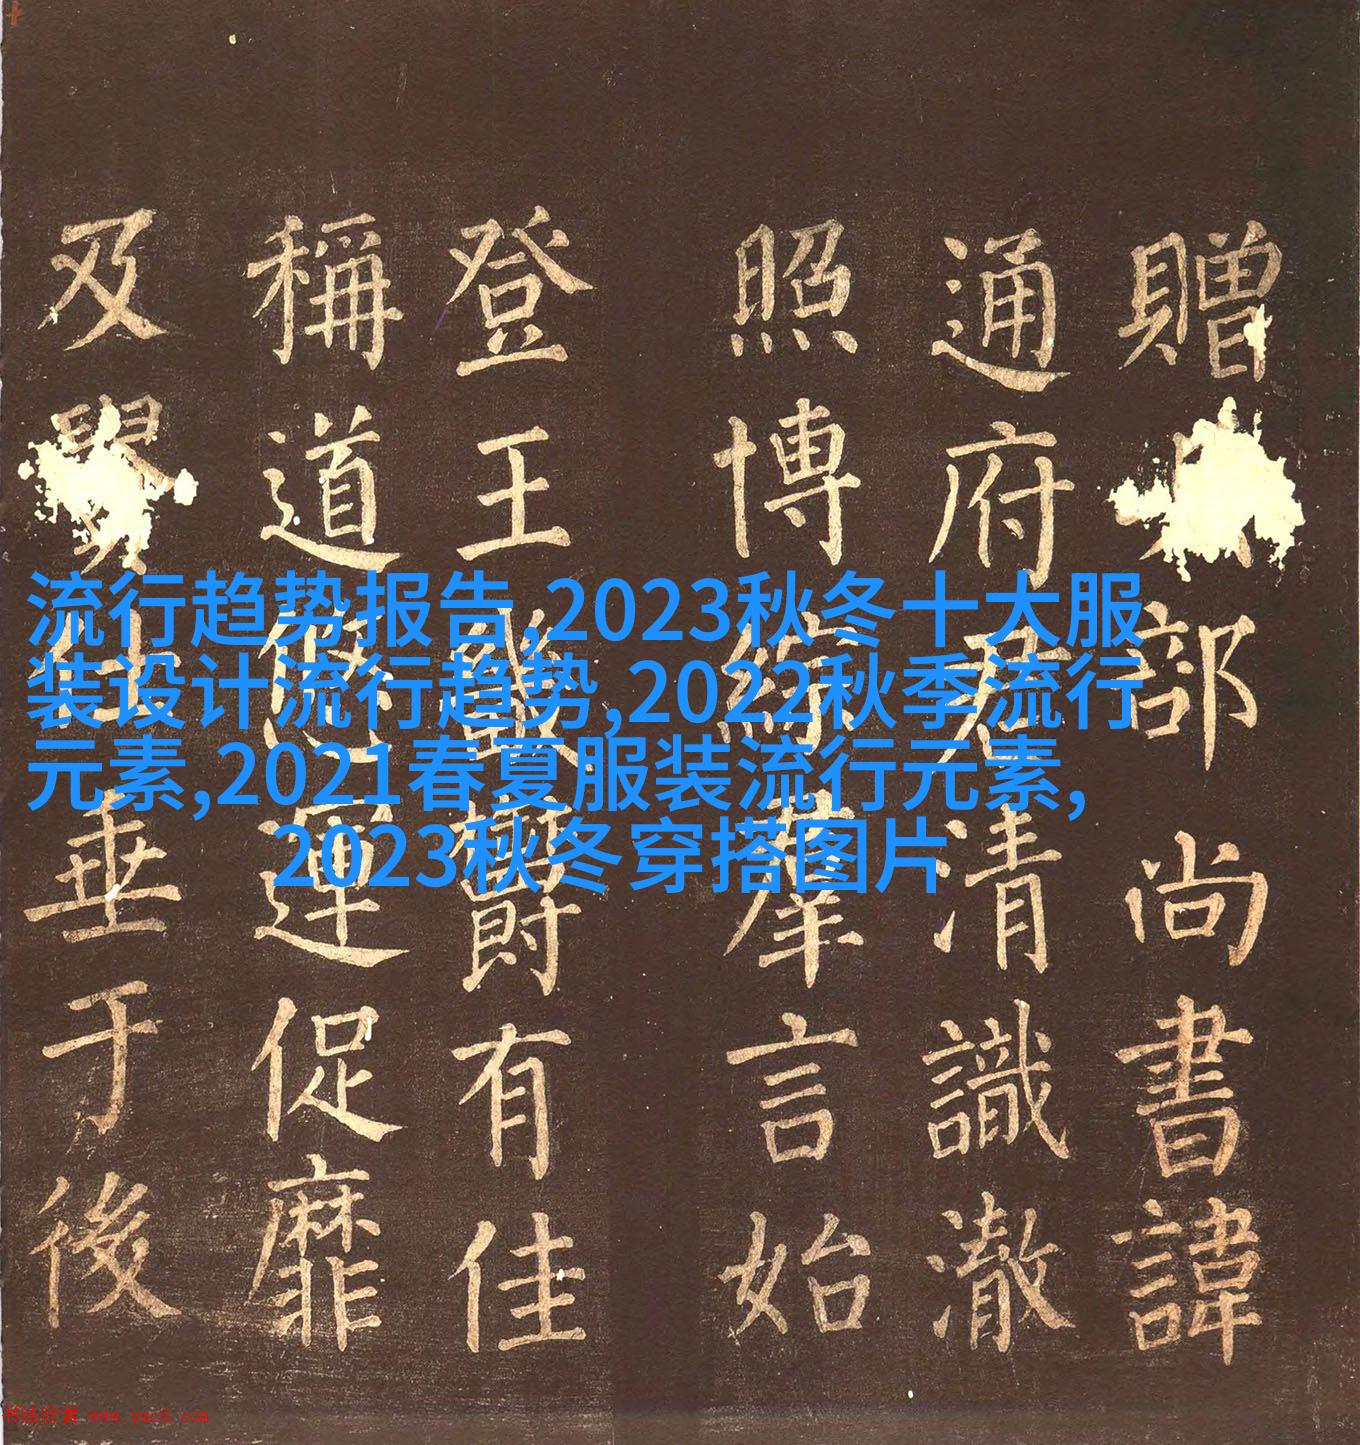 流行趋势报告,2023秋冬十大服
装设计流行趋势,2022秋季流行
元素,2021春夏服装流行元素,
2023秋冬穿搭图片
贈部尚書諱
通府君清識澈
照博綜羣言始
登王爵有佳
稱道運促靡
及仕垂于後
书法欣赏 www.yac8.com